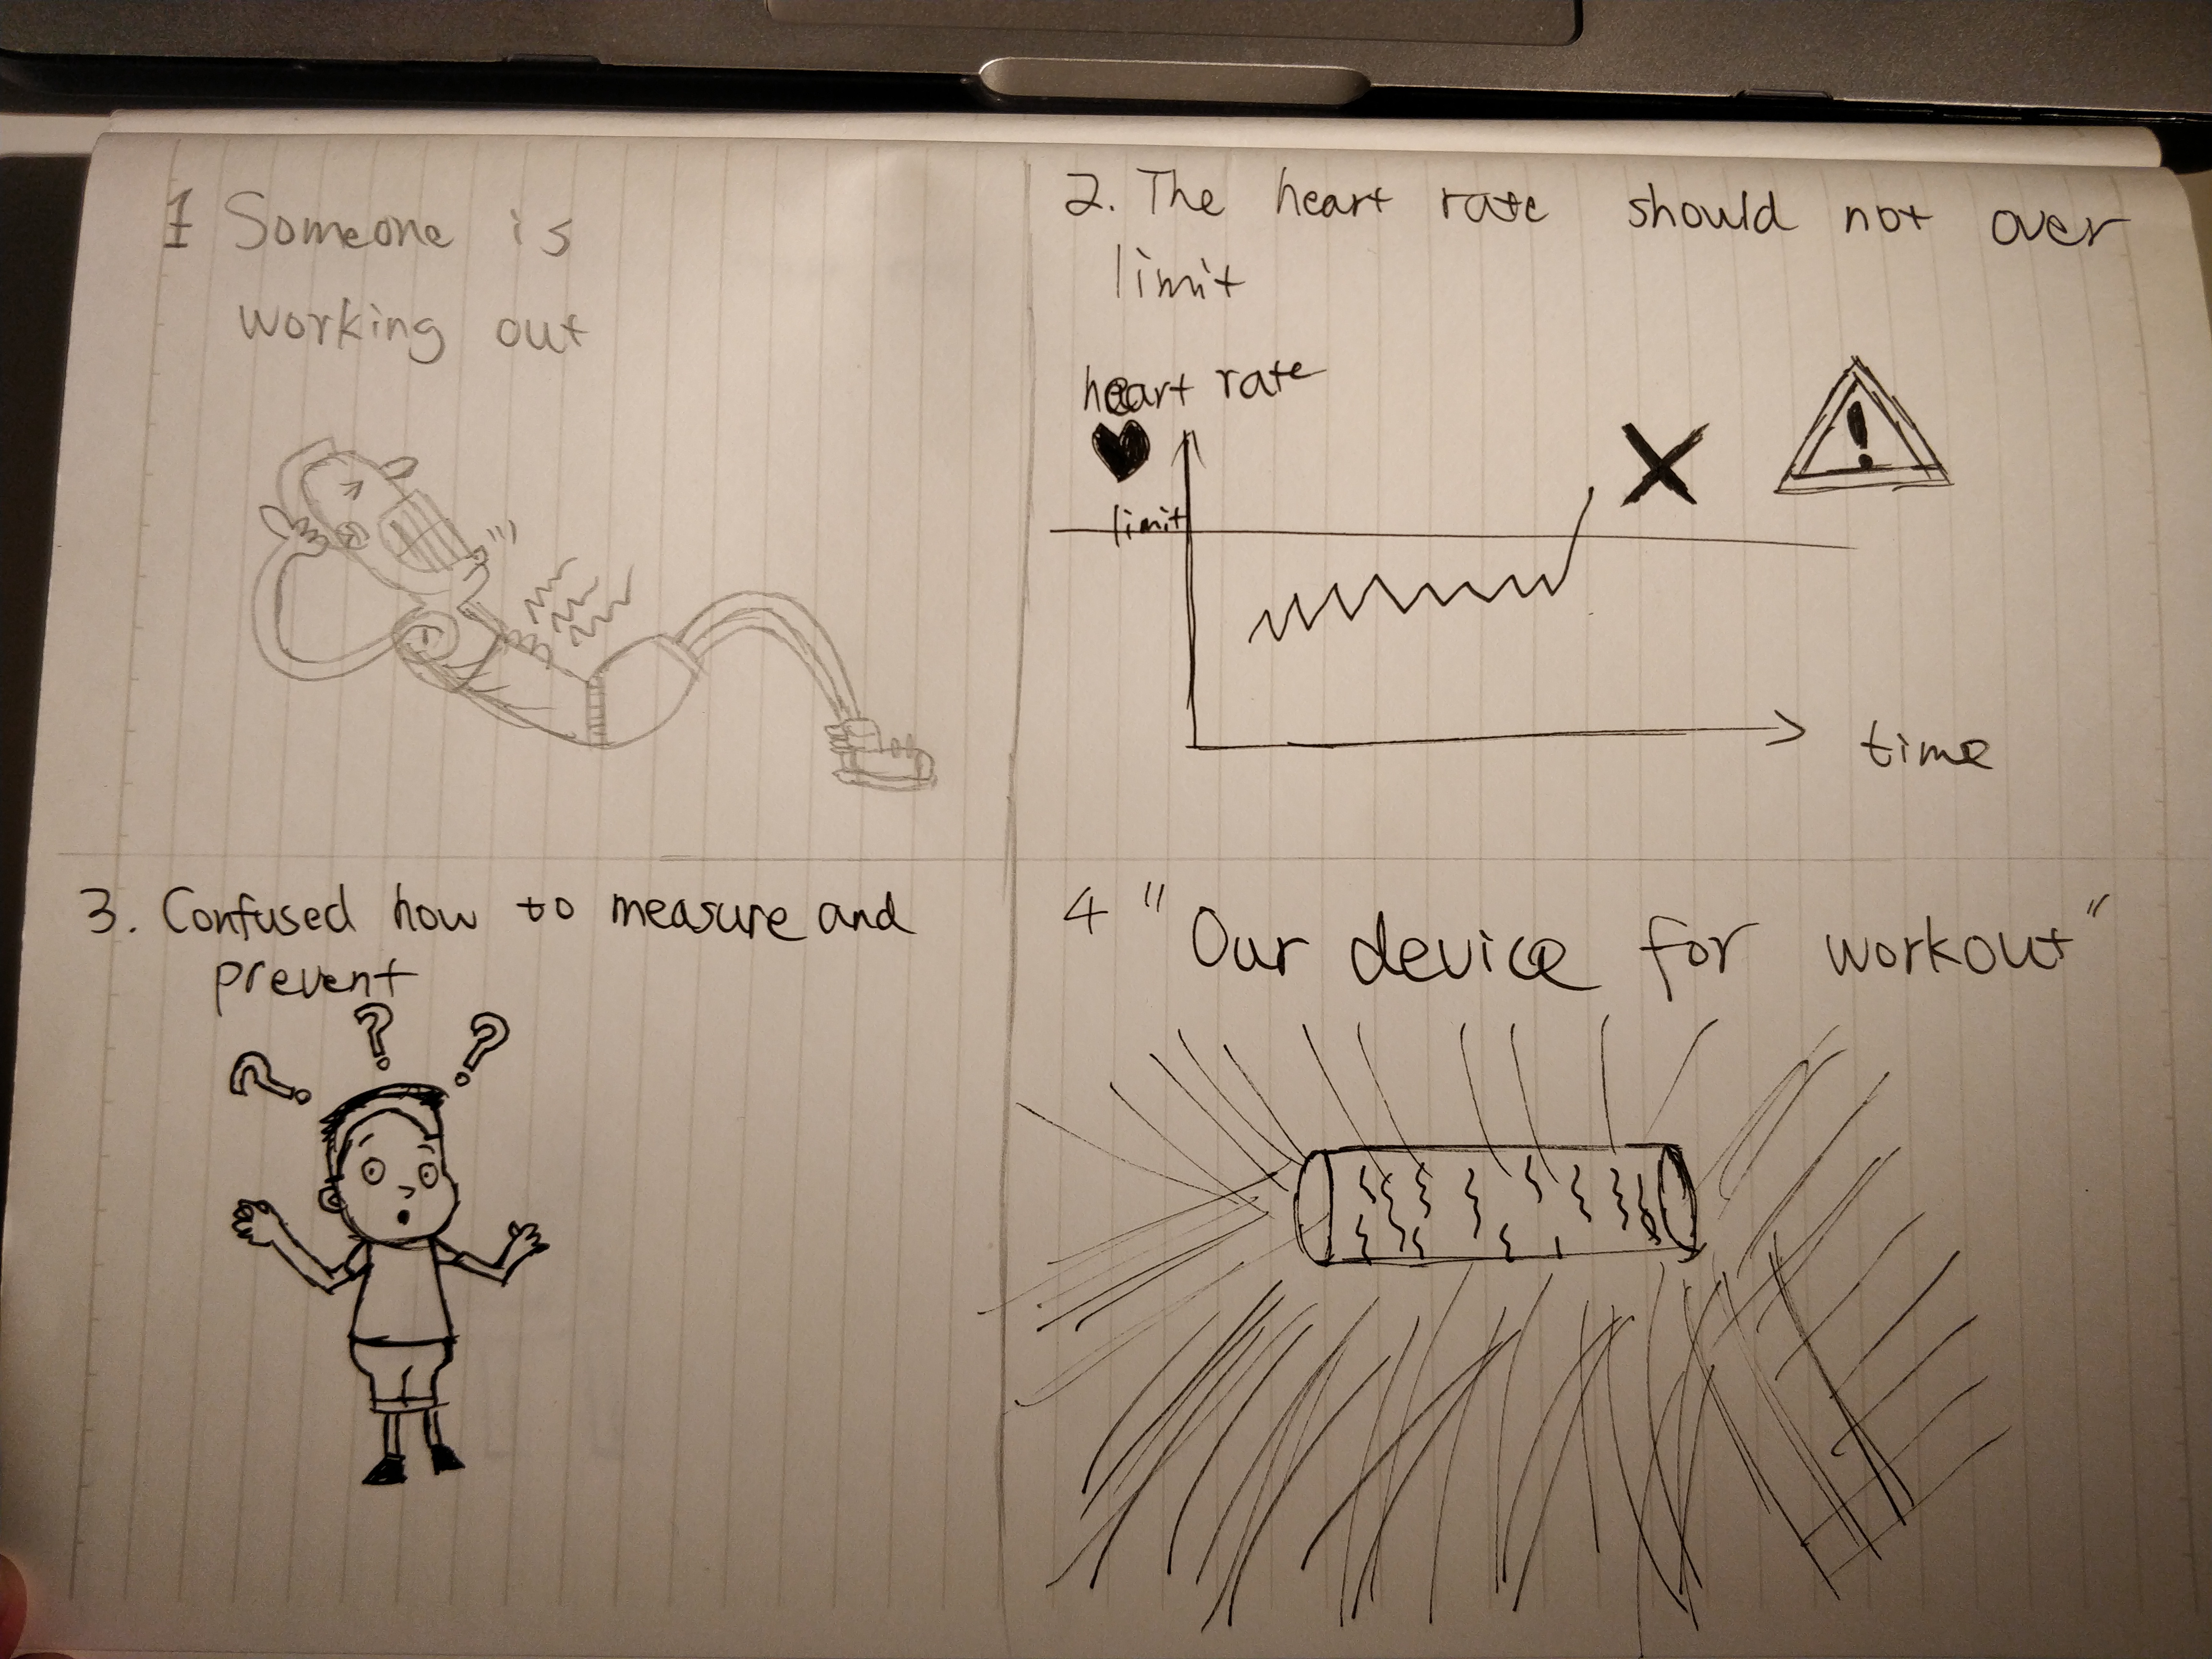 1 Someone is
working out
2. The heart rate should not over
limit
heart rate
limit
time
3. Confused how to measure and
prevent
? ? ?
4 "Our device for workout"